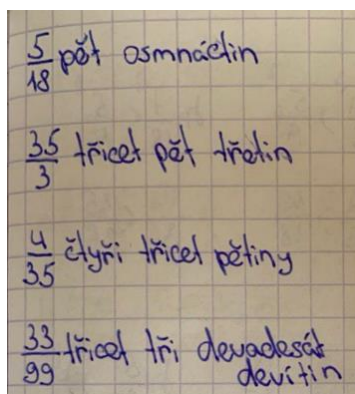 5/18 pět osmnáctin
35/3 třicet pět třetin
4/35 čtyři třicet pětiny
33/99 třicet tři devadesát
devítin